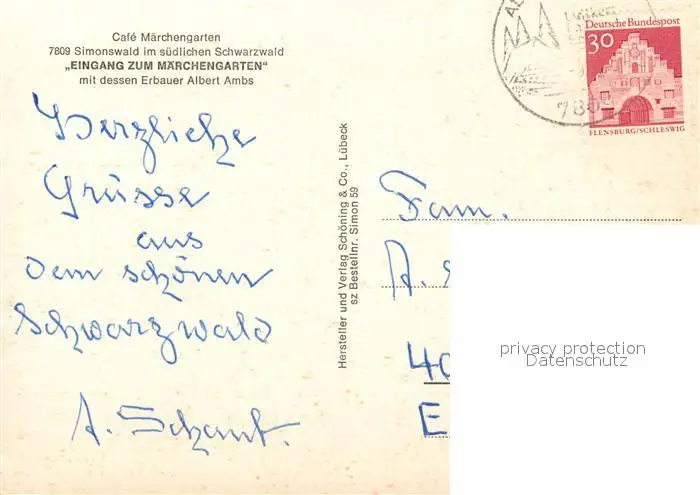 Café Märchengarten
7809 Simonswald im südlichen Schwarzwald
„EINGANG ZUM MÄRCHENGARTEN"
mit dessen Erbauer Albert Ambs
Herzliche
Grüsse
aus
dem schönen
Schwarzwald
A.
Hersteller und Verlag Schöning & Co., Lübeck
sz Bestellnr. Simon 59
Deutsche Bundespost
30
FLENSBURG/SCHLESWIG
Fam.
A.
40
E
privacy protection
Datenschutz